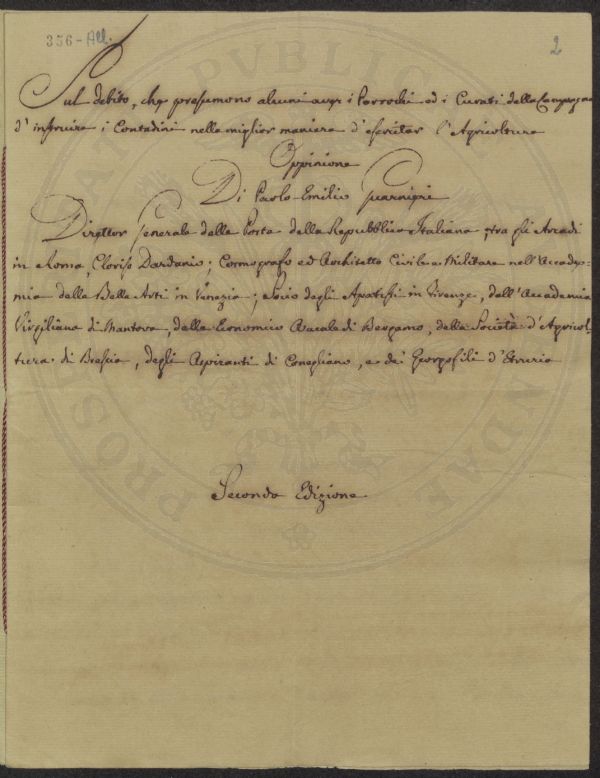 356-All. 2
Sul debito, che presumono alcuni aver i Parrochi ed i Curati della Campagna
d'instruire i Contadini nella miglior maniera d'esercitar l'Agricoltura
Oppinione
Di Paolo-Emilio Guarnieri
Direttor Generale delle Poste della Repubblica Italiana, tra gli Arcadi
in Roma, Cloriso Dardanio; Cosmografo ed Architetto Civile e Militare nell'Accade-
mia delle Belle Arti in Venezia; Socio degli Apatisti in Firenze, dell'Accademia
Virgiliana di Mantova, della Economico di Bergamo, della Società d'Agricol-
tura di Brescia, degli Aspiranti di Conegliano, e de' Georgofili d'Etruria
Seconda Edizione